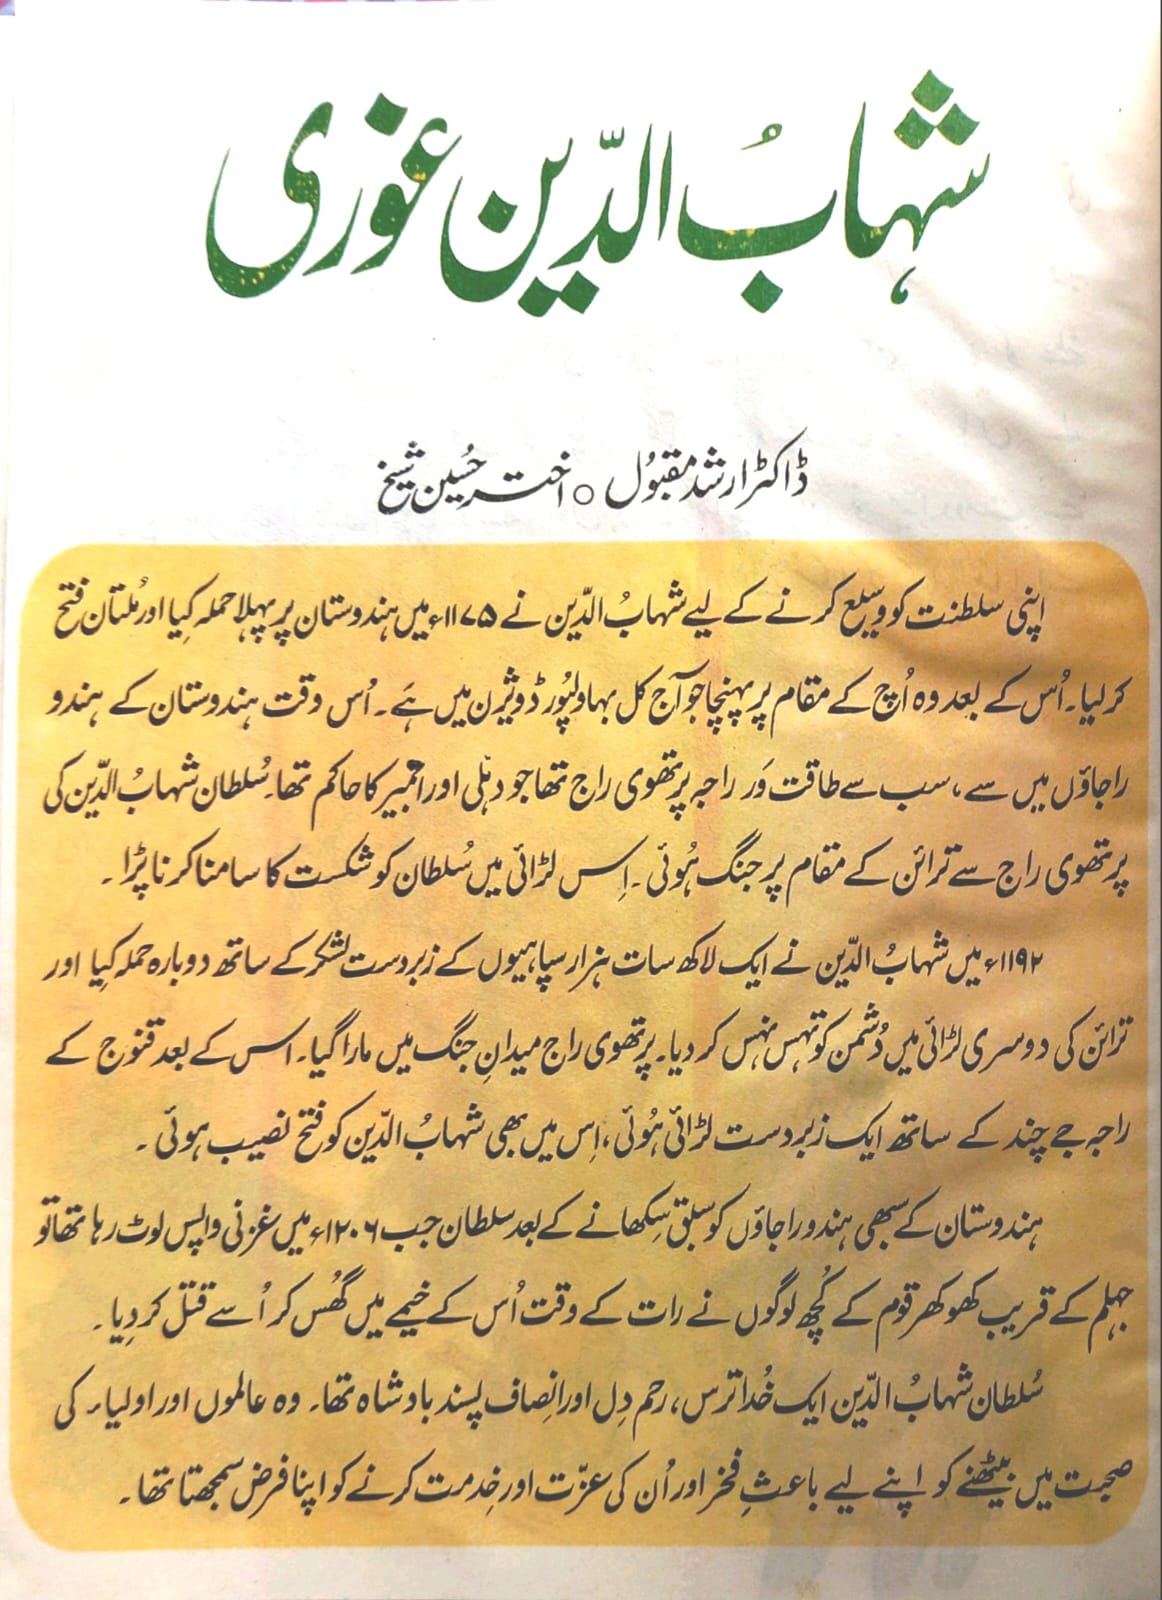 شہابُ الدّین غوری
ڈاکٹر ارشد مقبُول ○ اختر حُسین شیخ
اپنی سلطنت کو وسیع کرنے کے لیے شہابُ الدّین نے ۱۱۷۵ء میں ہندوستان پر پہلا حملہ کِیا اور مُلتان فتح
کر لیا۔ اُس کے بعد وہ اُچ کے مقام پر پہنچا جو آج کل بہاولپُور ڈویژن میں ہَے۔ اُس وقت ہندوستان کے ہندو
راجاؤں میں سے، سب سے طاقت وَر راجہ پرتھوی راج تھا جو دہلی اور اجمیر کا حاکم تھا۔ سُلطان شہابُ الدّین کی
پرتھوی راج سے ترائن کے مقام پر جنگ ہُوئی۔ اِس لڑائی میں سُلطان کو شکست کا سامنا کرنا پڑا۔
۱۱۹۲ء میں شہابُ الدّین نے ایک لاکھ سات ہزار سپاہیوں کے زبردست لشکر کے ساتھ دوبارہ حملہ کِیا اور
ترائن کی دوسری لڑائی میں دُشمن کو تہس نہس کر دیا۔ پرتھوی راج میدانِ جنگ میں مارا گیا۔ اس کے بعد قنوج کے
راجہ جے چند کے ساتھ ایک زبردست لڑائی ہُوئی، اِس میں بھی شہابُ الدّین کو فتح نصیب ہوئی۔
ہندوستان کے سبھی ہندو راجاؤں کو سبق سِکھانے کے بعد سلطان جب ۱۲۰۶ء میں غزنی واپس لوٹ رہا تھا تو
جہلم کے قریب کھوکھر قوم کے کُچھ لوگوں نے رات کے وقت اُس کے خیمے میں گھُس کر اُسے قتل کر دِیا۔
سُلطان شہابُ الدّین ایک خُدا ترس، رحم دِل اور اِنصاف پسند بادشاہ تھا۔ وہ عالموں اور اولیاء کی
صحبت میں بیٹھنے کو اپنے لیے باعثِ فخر اور اُن کی عزّت اور خِدمت کرنے کو اپنا فرض سمجھتا تھا۔